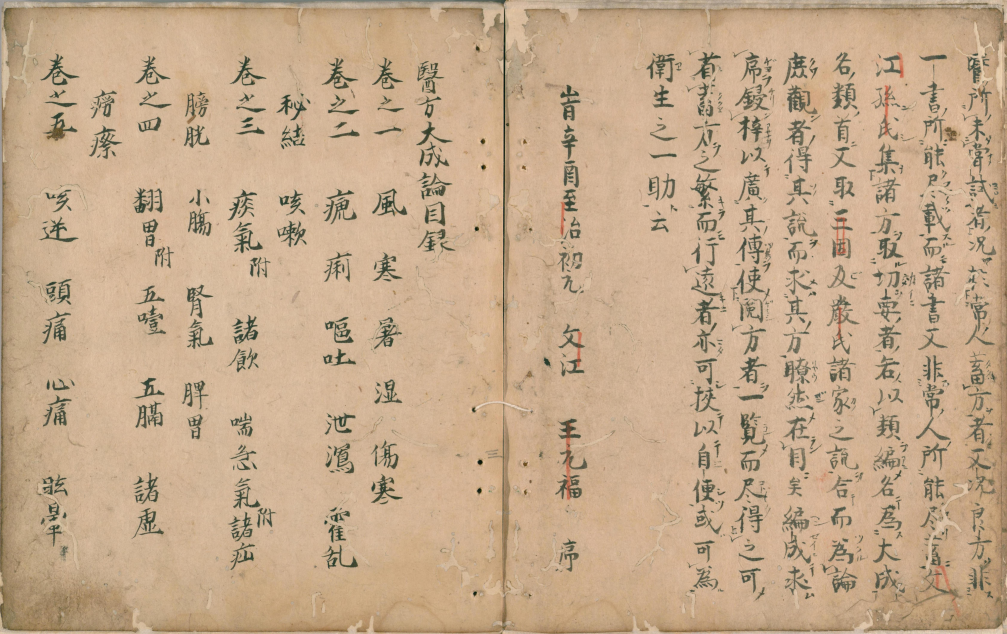 醫所未常試者況於常人畜方者又況良方非
一書所能尽載而諸書又非常人所能尽畜文
江孫氏集諸方取切要者各以類編名為大成
名類首又取三因及嚴氏諸家之説合而為論
庶觀者得其説而求其方瞭然在目矣編成求
席鋟梓以廣其傳使閲方者一覧而尽得之可
者畜方之繁而行遠者亦可挾以自便或可為
衛生之一助云
旹辛酉至治初元 文江 王元福 序
醫方大成論目録
巻之一 風 寒 暑 湿 傷寒
巻之二 瘧 痢 嘔吐 泄瀉 霍乱
秘結 咳嗽
巻之三 痰氣附 諸飲 喘急氣附 諸疝
膀胱 小腸 腎氣 脾胃
巻之四 翻胃附 五噎 五膈 諸虚
癆瘵
巻之五 咳逆 頭痛 心痛 眩暈